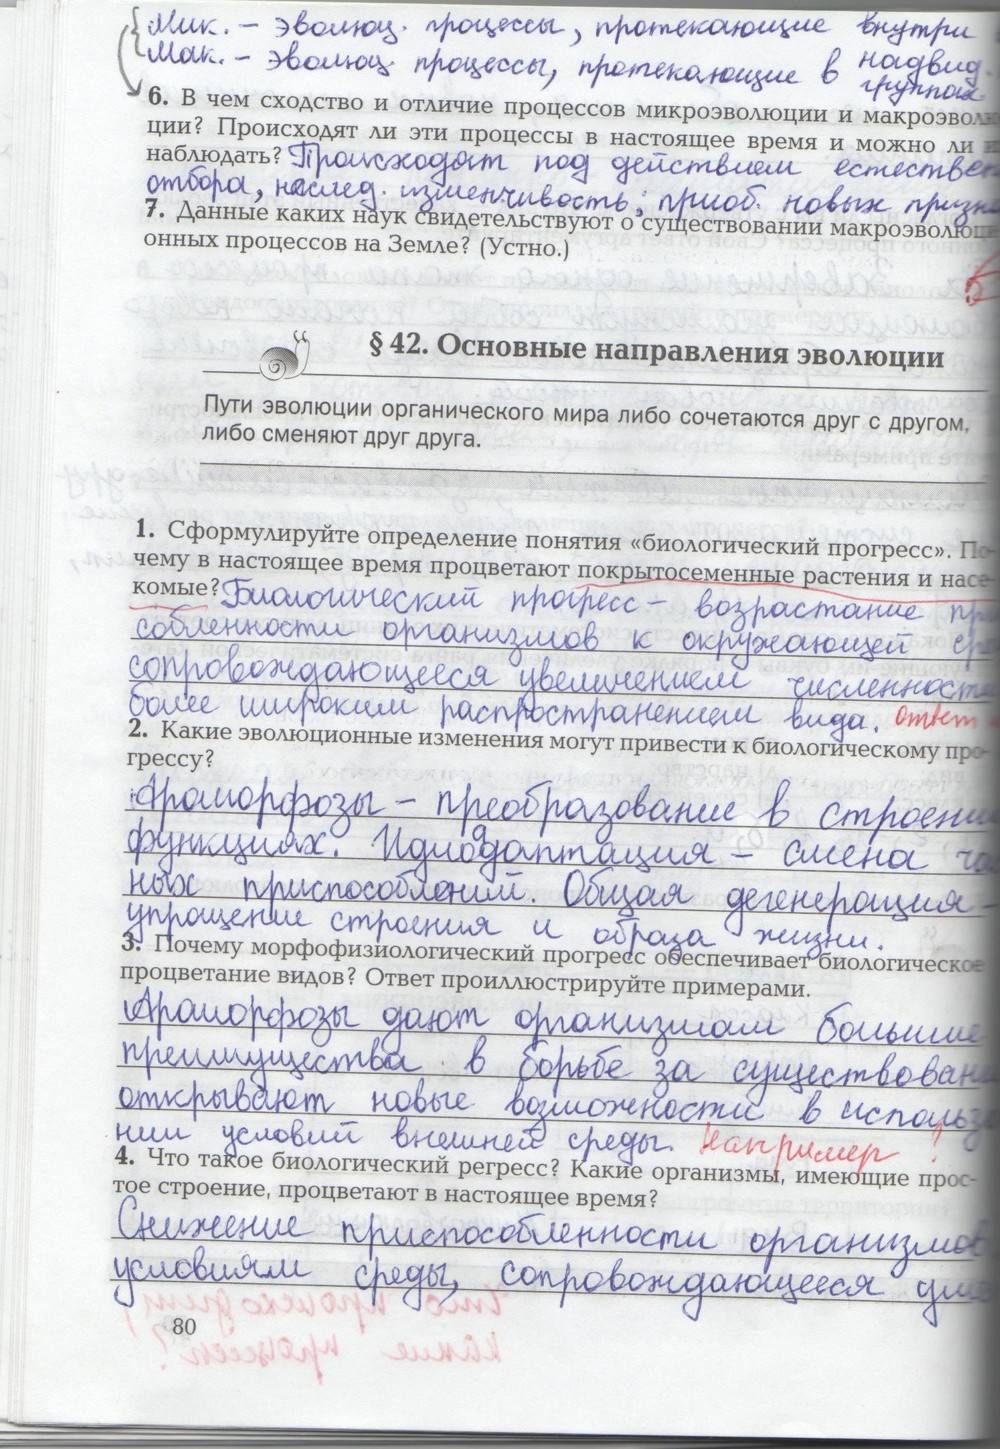 Мик. – эволюц. процессы, протекающие внутри
Мак. – эволюц. процессы, протекающие в надвид.
группах
6. В чем сходство и отличие процессов микроэволюции и макроэволю
ции? Происходят ли эти процессы в настоящее время и можно ли и
наблюдать? Происходят под действием естествен
отбора, наслед. изменчивость, приоб. новых призн
7. Данные каких наук свидетельствуют о существовании макроэволюци
онных процессов на Земле? (Устно.)
§ 42. Основные направления эволюции
Пути эволюции органического мира либо сочетаются друг с другом,
либо сменяют друг друга.
1. Сформулируйте определение понятия «биологический прогресс». По-
чему в настоящее время процветают покрытосеменные растения и насе-
комые? Биологический прогресс – возрастание при
собленности организмов к окружающей сре
сопровождающееся увеличением численности
более широким распространением вида. ответ
2. Какие эволюционные изменения могут привести к биологическому про-
грессу?
Ароморфозы – преобразование в строени
функциях. Идиоадаптация – смена ча
ных приспособлений. Общая дегенерация –
упрощение строения и образа жизни.
3. Почему морфофизиологический прогресс обеспечивает биологическое
процветание видов? Ответ проиллюстрируйте примерами.
Ароморфозы дают организмам большие
преимущества в борьбе за существован
открывают новые возможности в использо
нии условий внешней среды. Например ?
4. Что такое биологический регресс? Какие организмы, имеющие прос-
тое строение, процветают в настоящее время?
Снижение приспособленности организмов
условиям среды, сопровождающееся уме
80